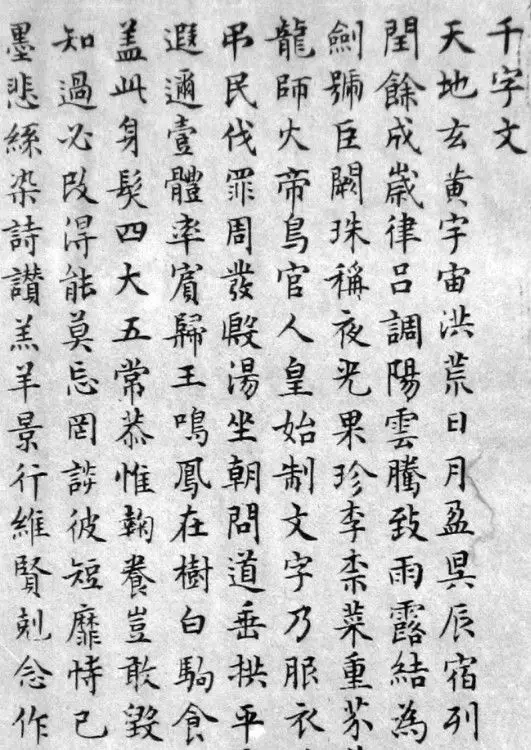 千字文
天地玄黄宇宙洪荒日月盈昃辰宿列
閏餘成歲律吕調陽雲騰致雨露結為
劍號巨闕珠稱夜光果珍李柰菜重芥
龍師火帝鳥官人皇始制文字乃服衣
吊民伐罪周發殷湯坐朝問道垂拱平
遐邇壹體率賓歸王鳴鳳在樹白駒食
盖此身髮四大五常恭惟鞠養豈敢毀
知過必改得能莫忘罔談彼短靡恃己
墨悲絲染詩讃羔羊景行維賢剋念作